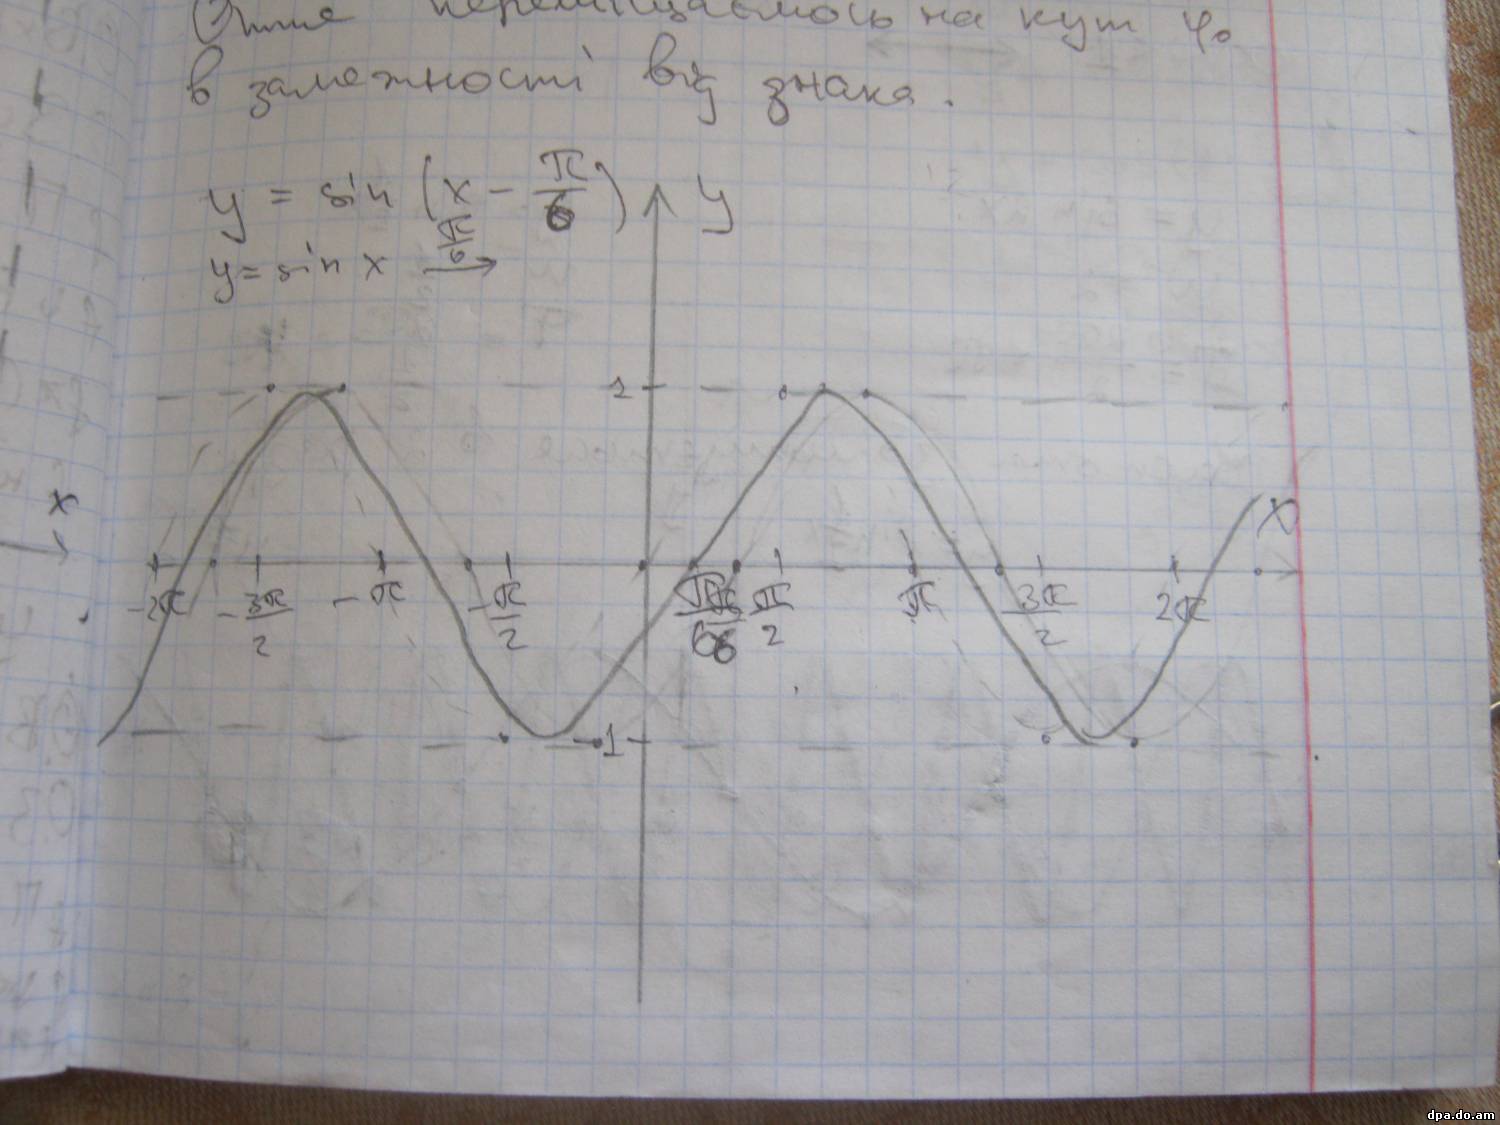 Отже переміщаємось на кут φ₀
в залежності від знака.
y = sin (x - π/6)
y = sin x π/6 →
y
1
x
x
-2π
-3π/2
-π
-π/2
π/6
π/6
π/2
π
3π/2
2π
-1
dpa.do.am